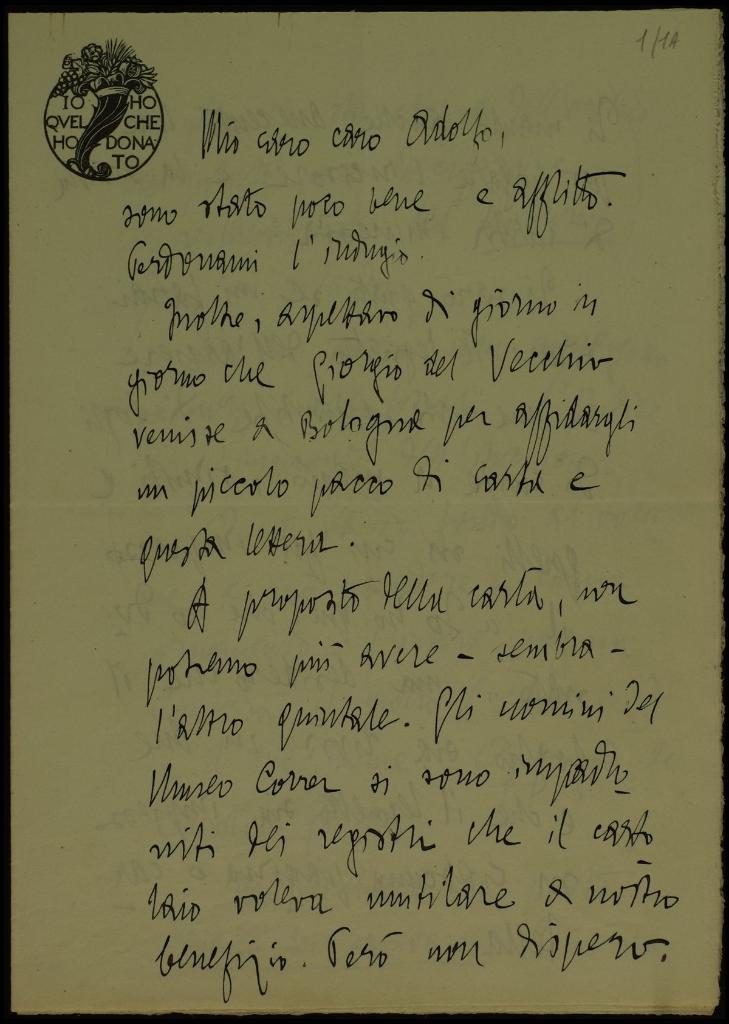 1/1A
IO HO
QVEL CHE
HO DONA
TO
Mio caro caro Adolfo,
sono stato poco bene e afflitto.
Perdonami l'indugio.
Inoltre, aspettavo di giorno in
giorno che Giorgio del Vecchio
venisse a Bologna per affidargli
un piccolo pacco di carta e
questa lettera.
A proposito della carta, non
potremo più avere – sembra –
l'altro quintale. Gli uomini del
Museo Correr si sono impadro
niti dei registri che il carto
laio voleva mutilare a nostro
benefizio. Però non dispero.